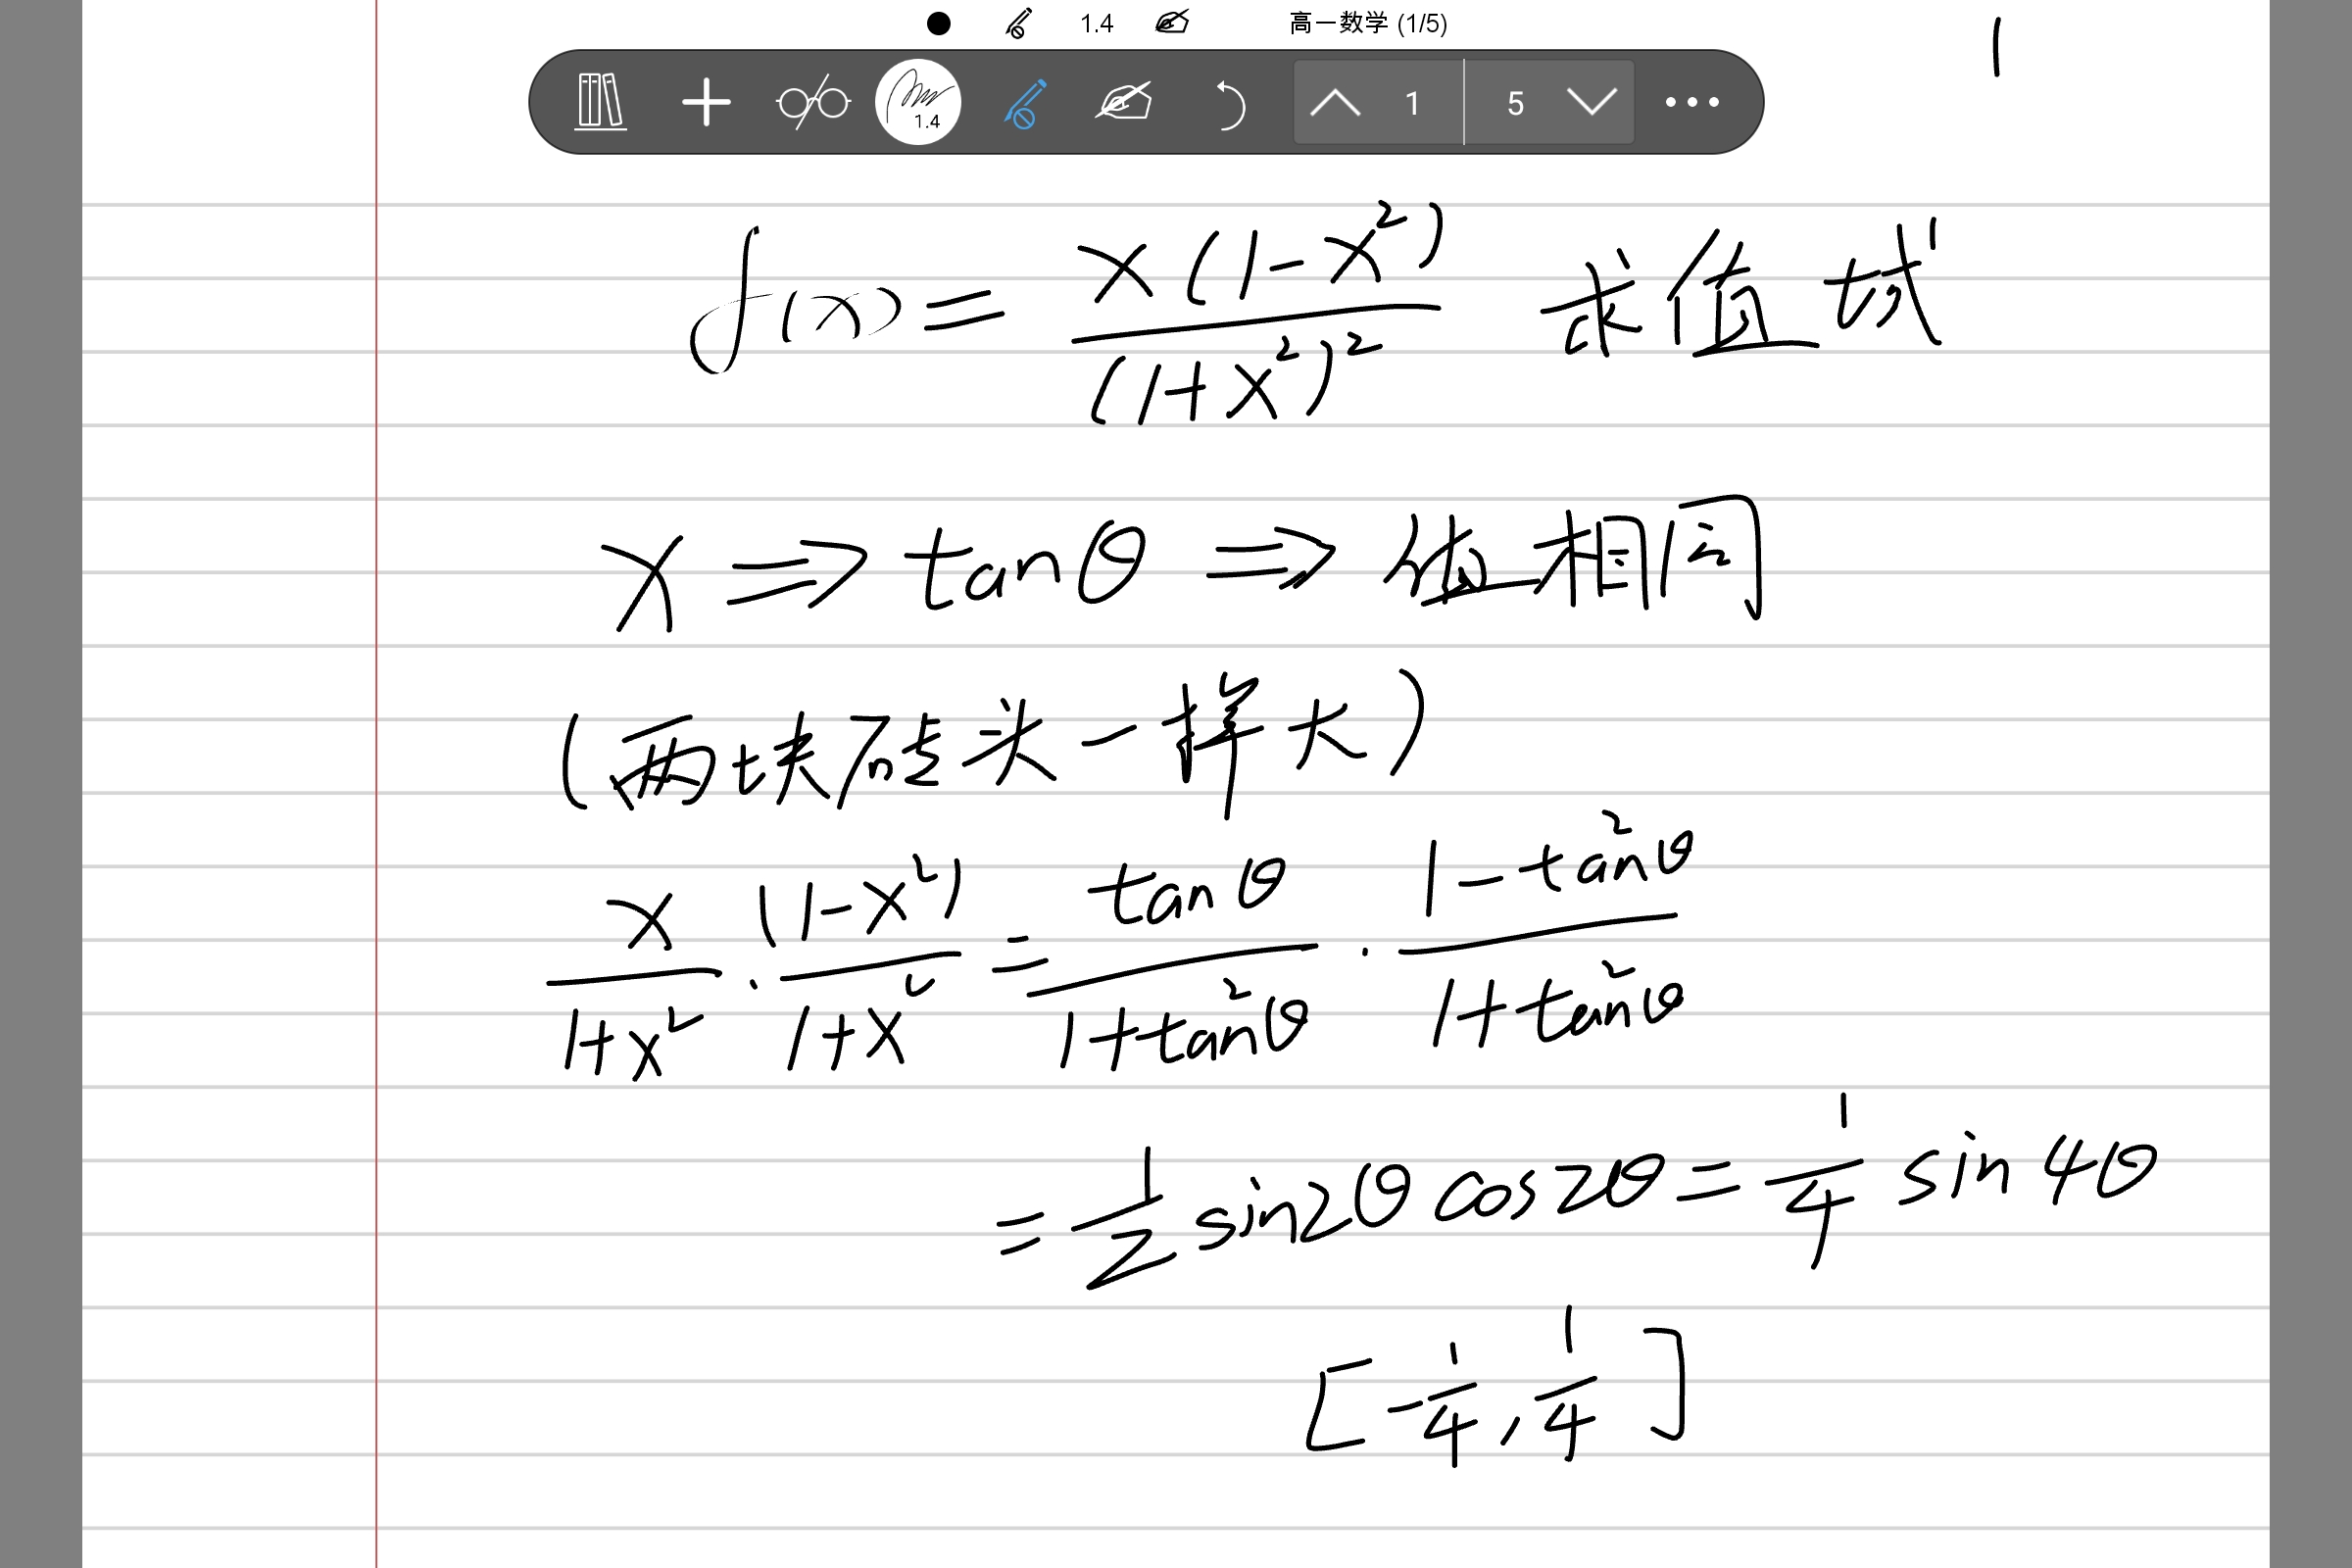 1.4 高一数学 (1/5)
1.4 1 5
f(x) = x(1-x²) / (1+x²)² 求值域
x ⇒ tanθ ⇒ 值相同
(两块砖头一样大)
x/(1+x²) · (1-x²)/(1+x²) = tanθ/(1+tan²θ) · (1-tan²θ)/(1+tan²θ)
= 1/2 sin2θ cos2θ = 1/4 sin4θ
[-1/4, 1/4]